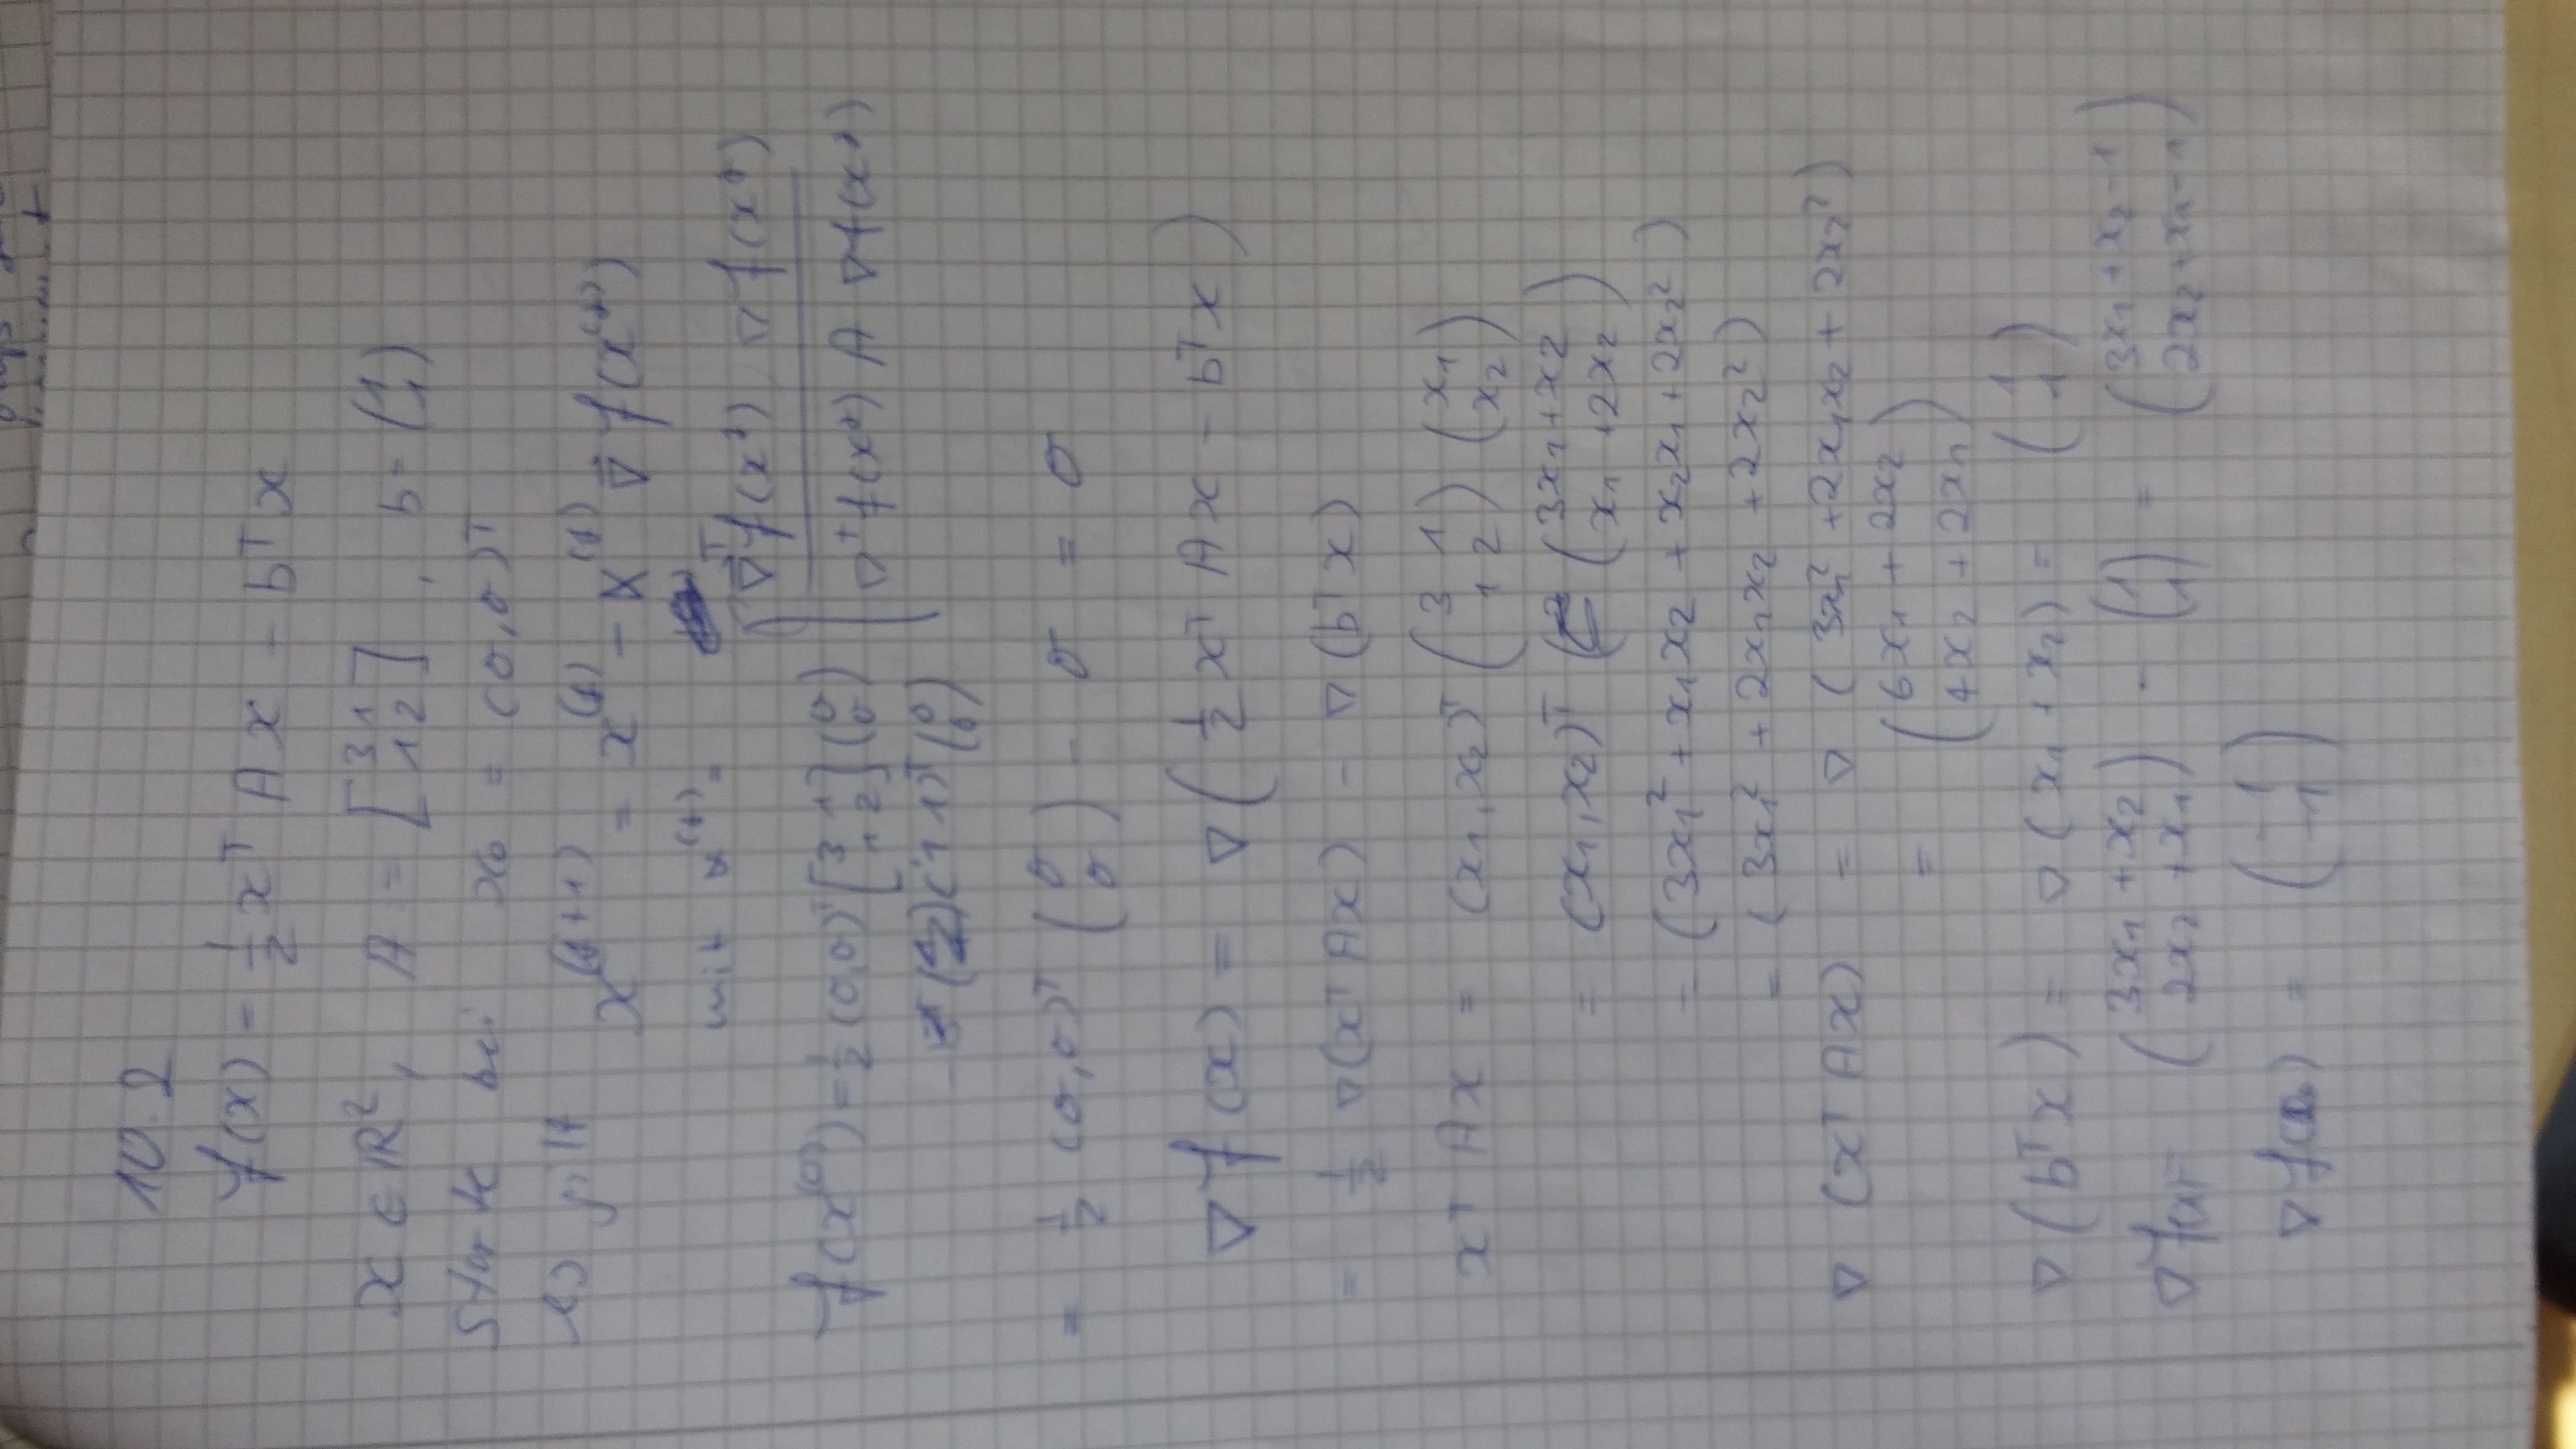 10.2
f(x) = 1/2 x^T A x - b^T x
x ∈ ℝ^2, A = [3 1; 1 2], b = (1; 1)
Starte bei x_0 = (0,0)^T
es gilt x^(t+1) = x^(t) - α^(t) ∇f(x^(t))
mit α^(t) =
∇^T f(x^t) ∇f(x^t) / ∇^T f(x^t) A ∇f(x^t)
f(x^(0)) = 1/2 (0,0)^T [3 1; 1 2] (0; 0)
(1 1)^T (0; 0)
= 1/2 (0,0)^T (0; 0) - 0 = 0
∇f(x) = ∇(1/2 x^T A x - b^T x)
= 1/2 ∇(x^T A x) - ∇(b^T x)
x^T A x = (x_1, x_2)^T (3 1; 1 2) (x_1; x_2)
= (x_1, x_2)^T (3x_1 + x_2; x_1 + 2x_2)
= (3x_1^2 + x_1x_2 + x_2x_1 + 2x_2^2)
= (3x_1^2 + 2x_1x_2 + 2x_2^2)
∇(x^T A x) = ∇(3x_1^2 + 2x_1x_2 + 2x_2^2)
= (6x_1 + 2x_2; 4x_2 + 2x_1)
∇(b^T x) = ∇(x_1 + x_2) = (1; 1)
∇f(x) = (3x_1 + x_2; 2x_2 + x_1) - (1; 1) = (3x_1 + x_2 - 1; 2x_2 + x_1 - 1)
∇f(x_0) = (-1; -1)